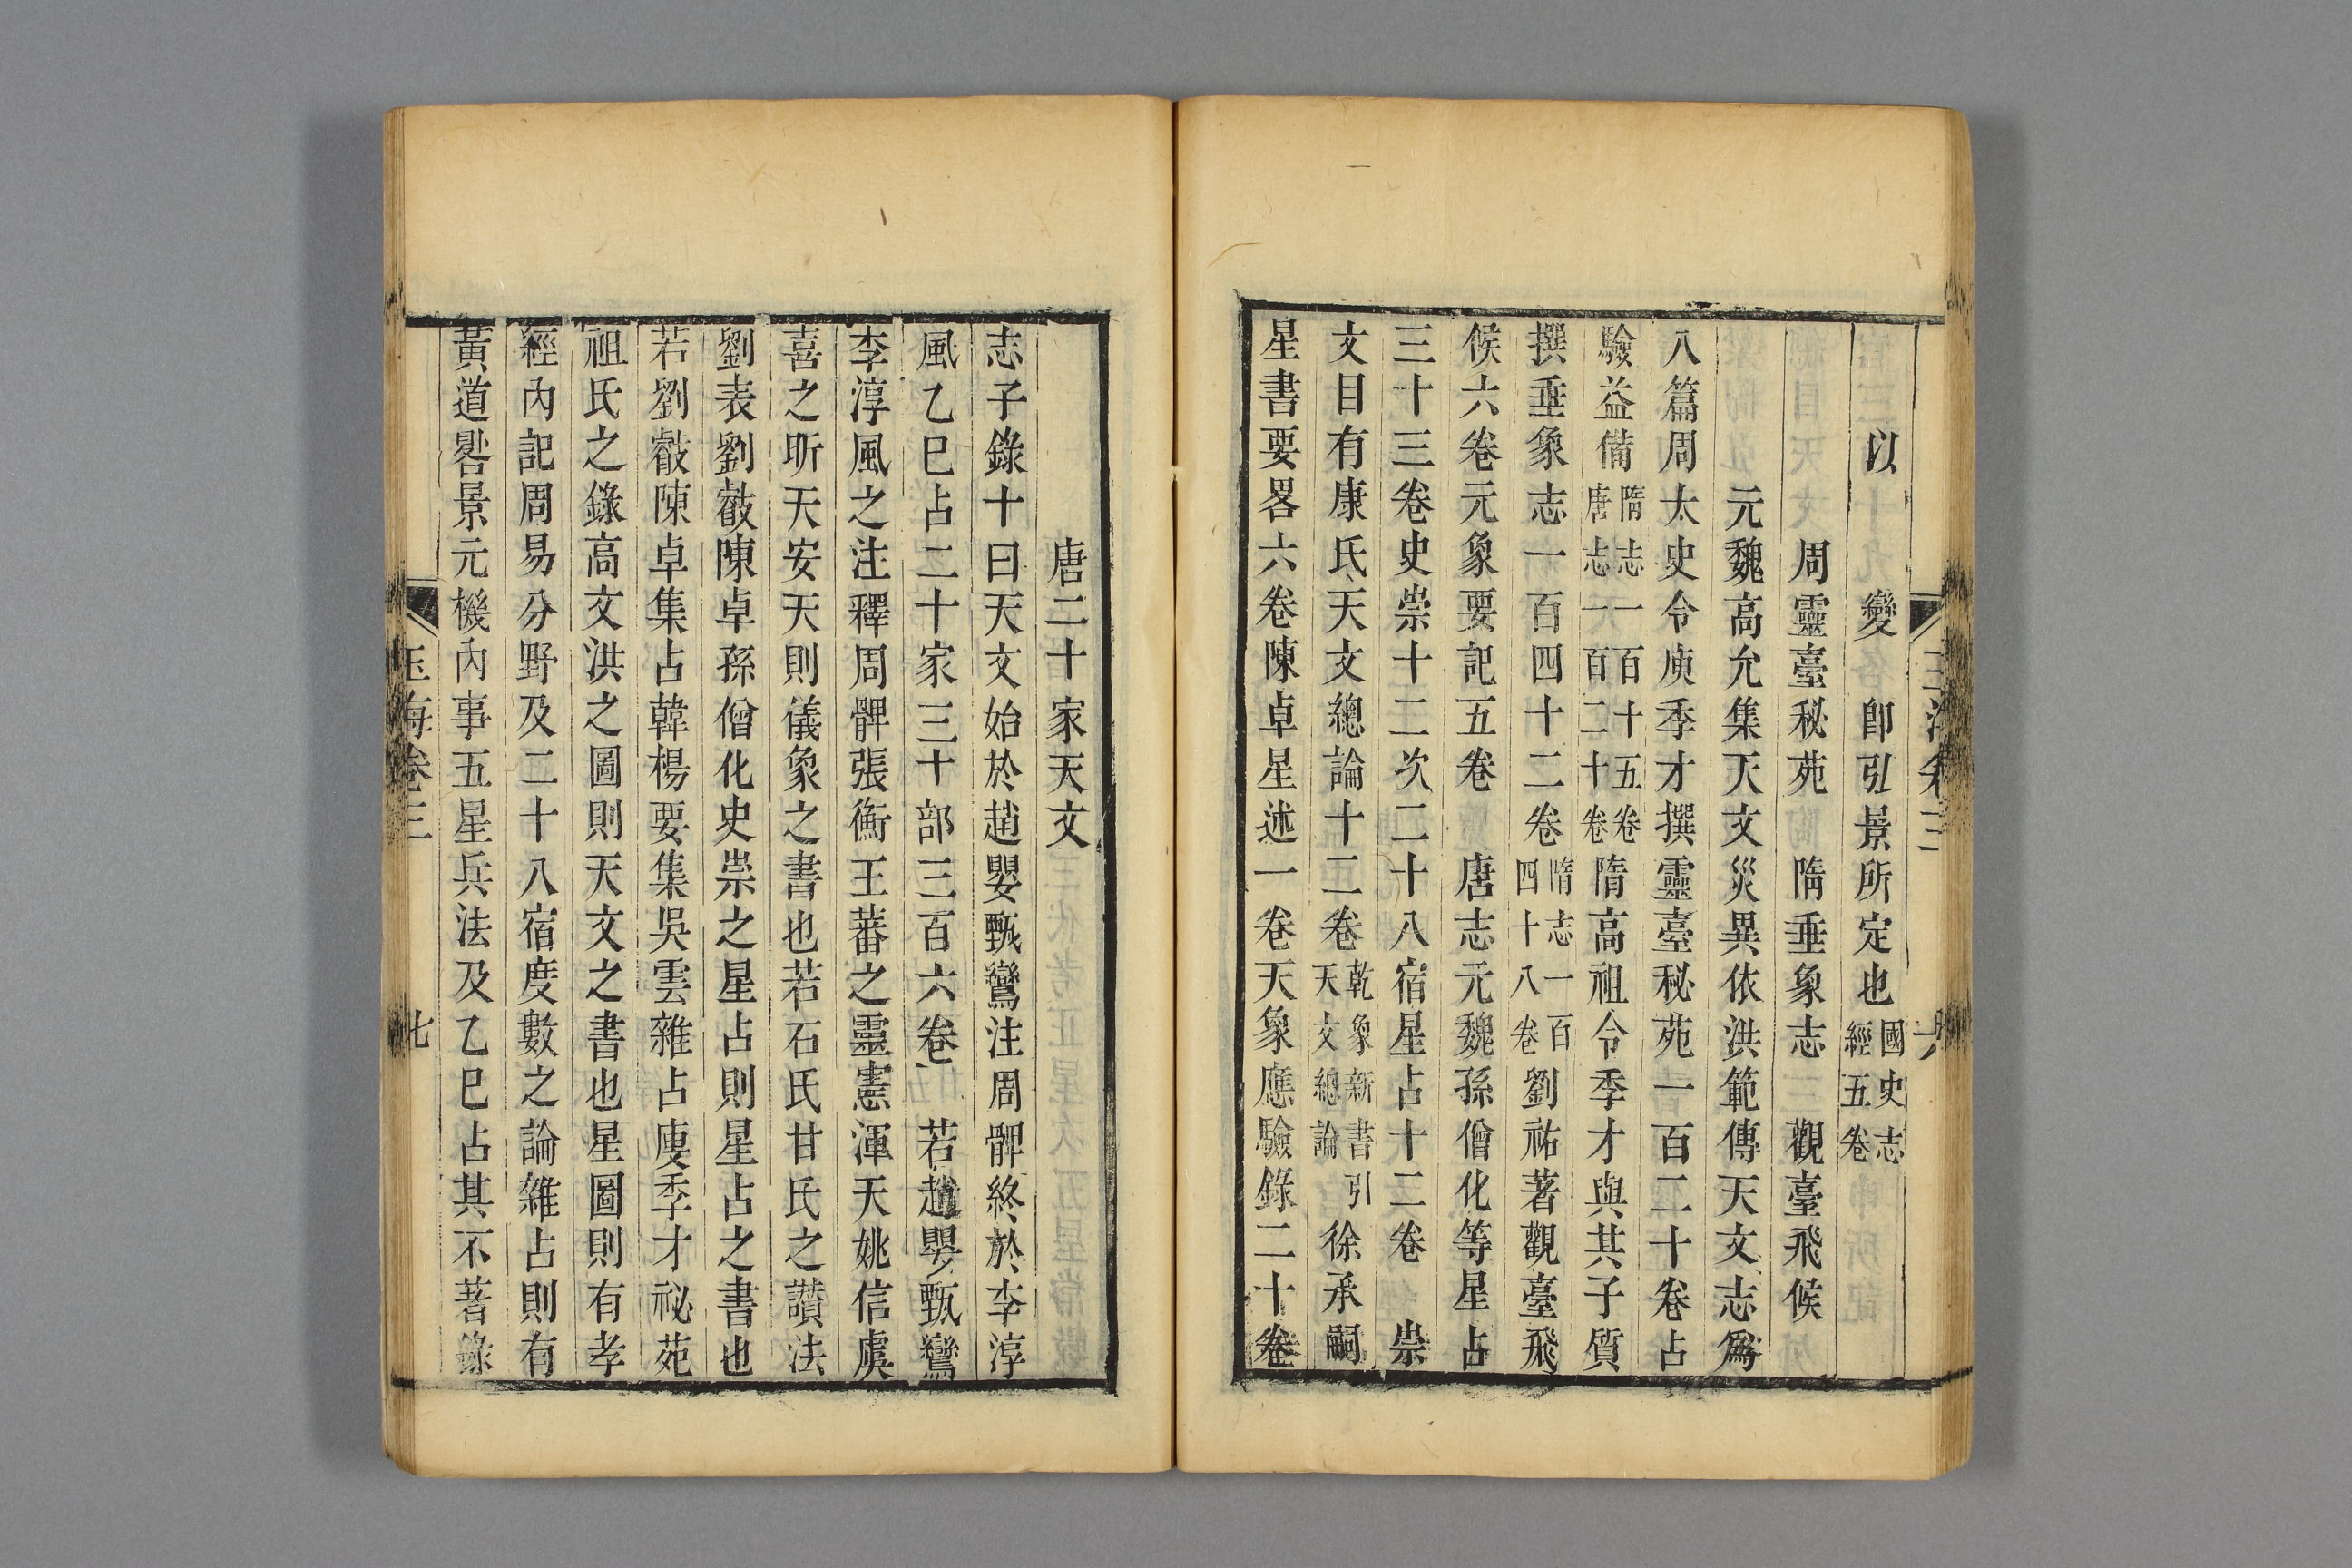 以　變　卽引景所定也國史志經五卷
周靈臺秘苑　隋垂象志　觀臺飛候
元魏高允集天文災異依洪範傳天文志爲
八篇周太史令庾季才撰靈臺秘苑一百二十卷占
驗益備隋志一百十五卷唐志一百二十卷隋高祖令季才與其子質
撰垂象志一百四十二卷隋志一百四十八卷劉祐著觀臺飛
候六卷元象要記五卷　唐志元魏孫僧化等星占
三十三卷史崇十二次二十八宿星占十二卷　崇
文目有康氏天文總論十二卷乾象新書引天文總論徐承嗣
星書要畧六卷陳卓星述一卷天象應驗錄二十卷
唐二十家天文
志子錄十曰天文始於趙嬰甄鸞注周髀終於李淳
風乙巳占二十家三十部三百六卷　若趙嬰甄鸞
李淳風之注釋周髀張衡王蕃之靈憲渾天姚信虞
喜之昕天安天則儀象之書也若石氏甘氏之讚法
劉表劉叡陳卓孫僧化史崇之星占則星占之書也
若劉叡陳卓集占韓楊要集吳雲雜占庾季才祕苑
祖氏之錄高文洪之圖則天文之書也星圖則有孝
經內記周易分野及二十八宿度數之論雜占則有
黃道晷景元機內事五星兵法及乙巳占其不著錄
玉海卷三
七